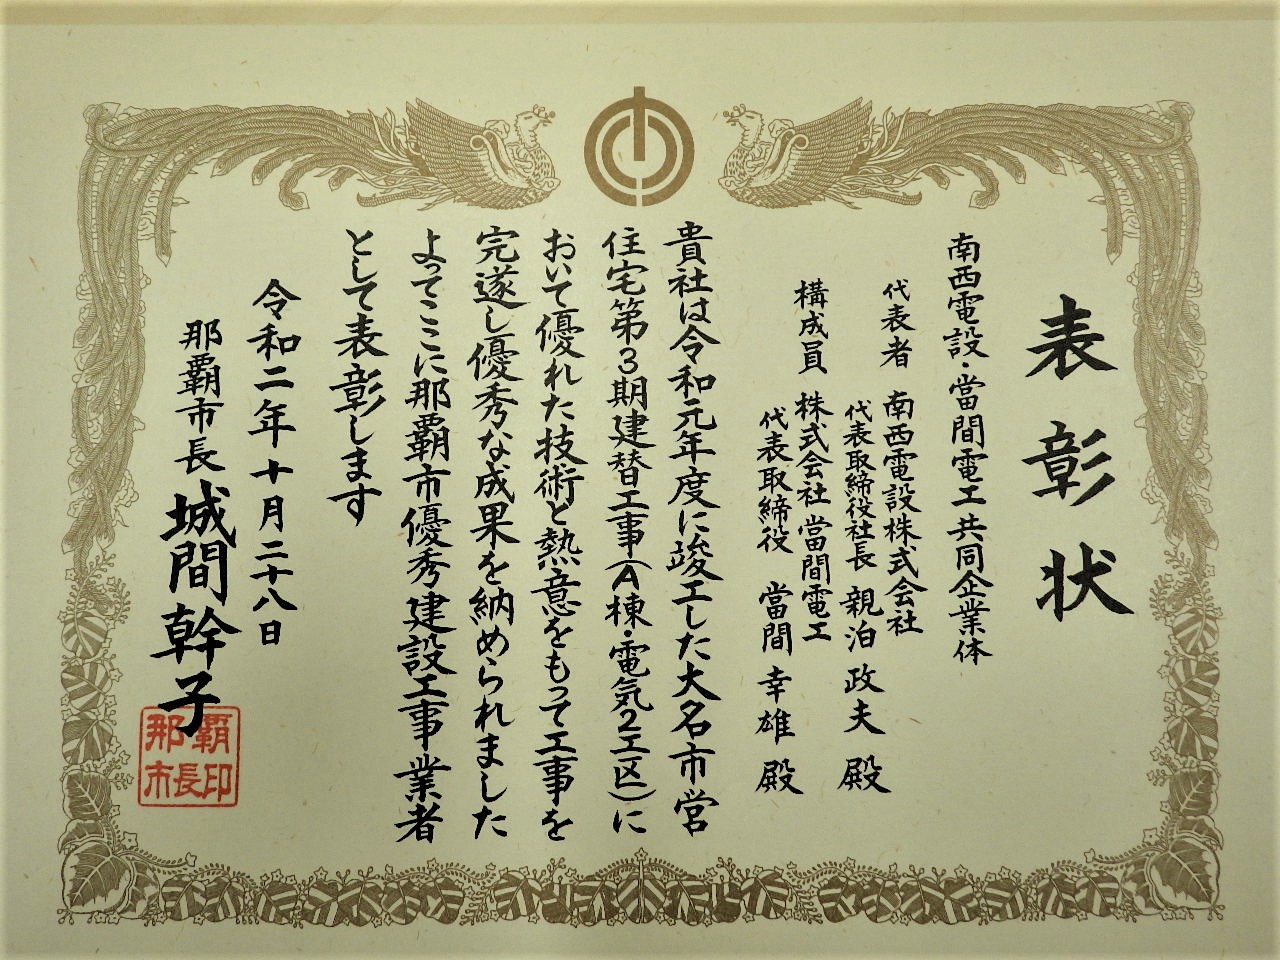 表彰状
南西電設・當間電工共同企業体
代表者 南西電設株式会社
代表取締役社長 親泊 政夫 殿
構成員 株式会社 當間電工
代表取締役 當間 幸雄 殿
貴社は令和元年度に竣工した大名市営
住宅第3期建替工事(A棟・電気2工区)に
おいて優れた技術と熱意をもって工事を
完遂し優秀な成果を納められました
よってここに那覇市優秀建設工事業者
として表彰します
令和二年十月二十八日
那覇市長 城間 幹子
那覇
市長印